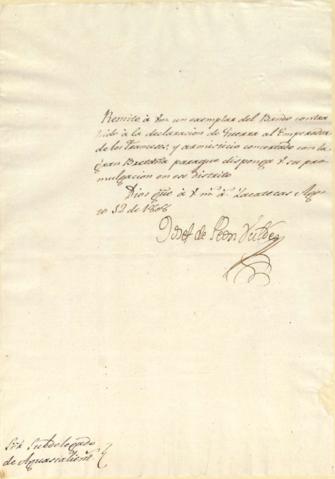 Remito à Vm un exemplar del Bando contra
hido à la declaracion de Guerra al Emperador
de los Franceses; y armisticio concertado con la
Gran Bretaña paraque disponga V su pro-
mulgacion en ese Distrito
Dios gũe à V m.s a.s Zacatecas Agos
to de 1808
Josef de Peon Valdes
Sōr Subdelegado
de Aguascalient.s